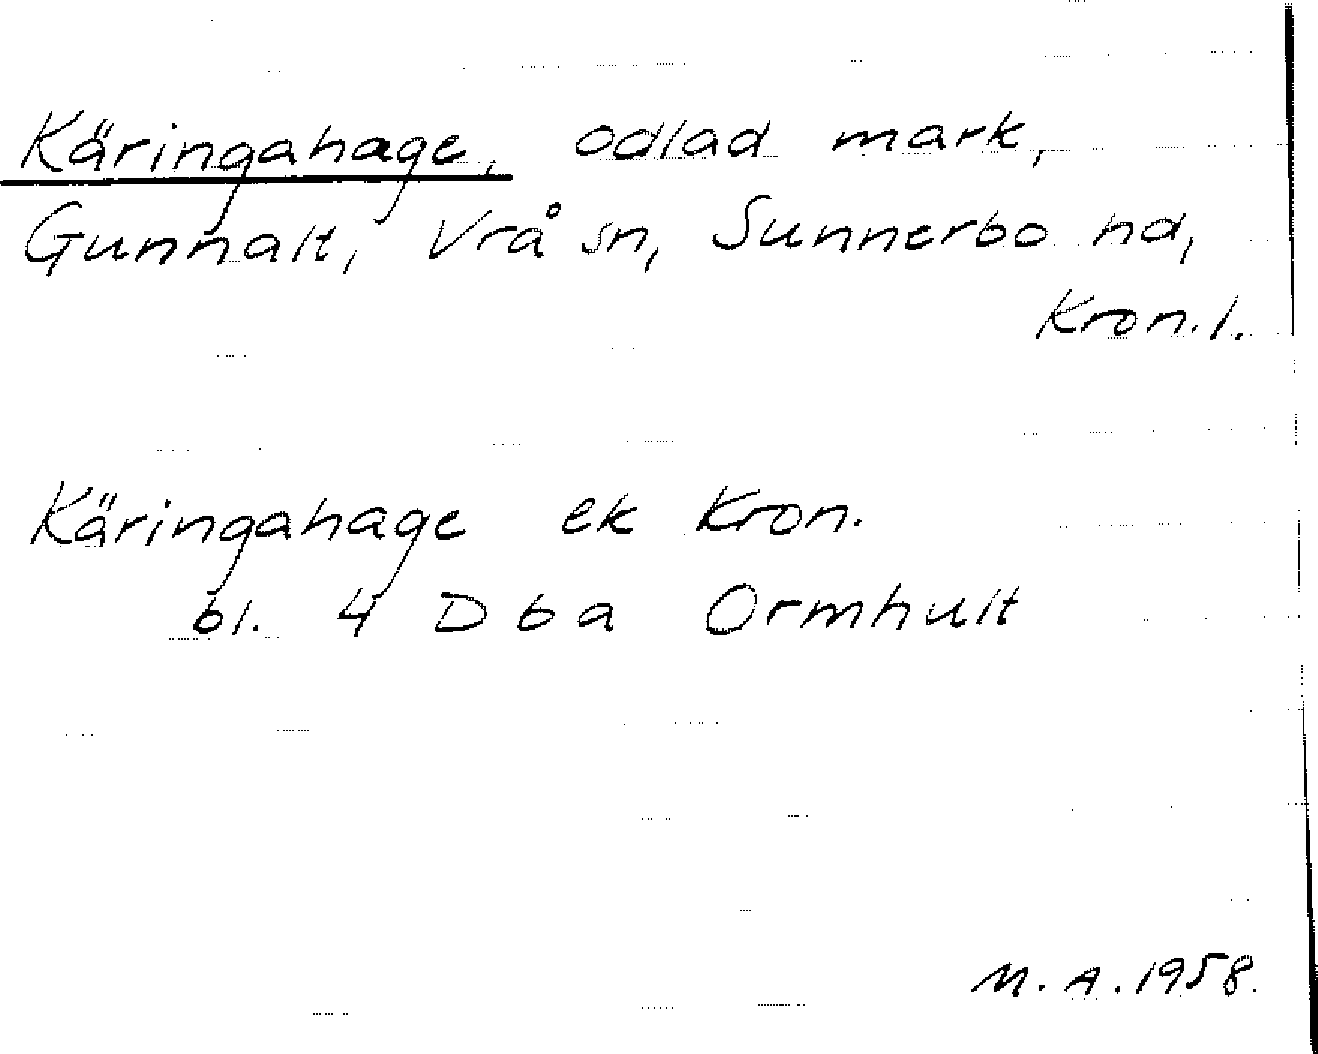 Käringahage, odlad mark,
Gunnalt, Vrå sn, Sunnerbo hd,
Kron.l.
Käringahage ek Kron.
bl. 4 D b a Ormhult
M.A.1958.